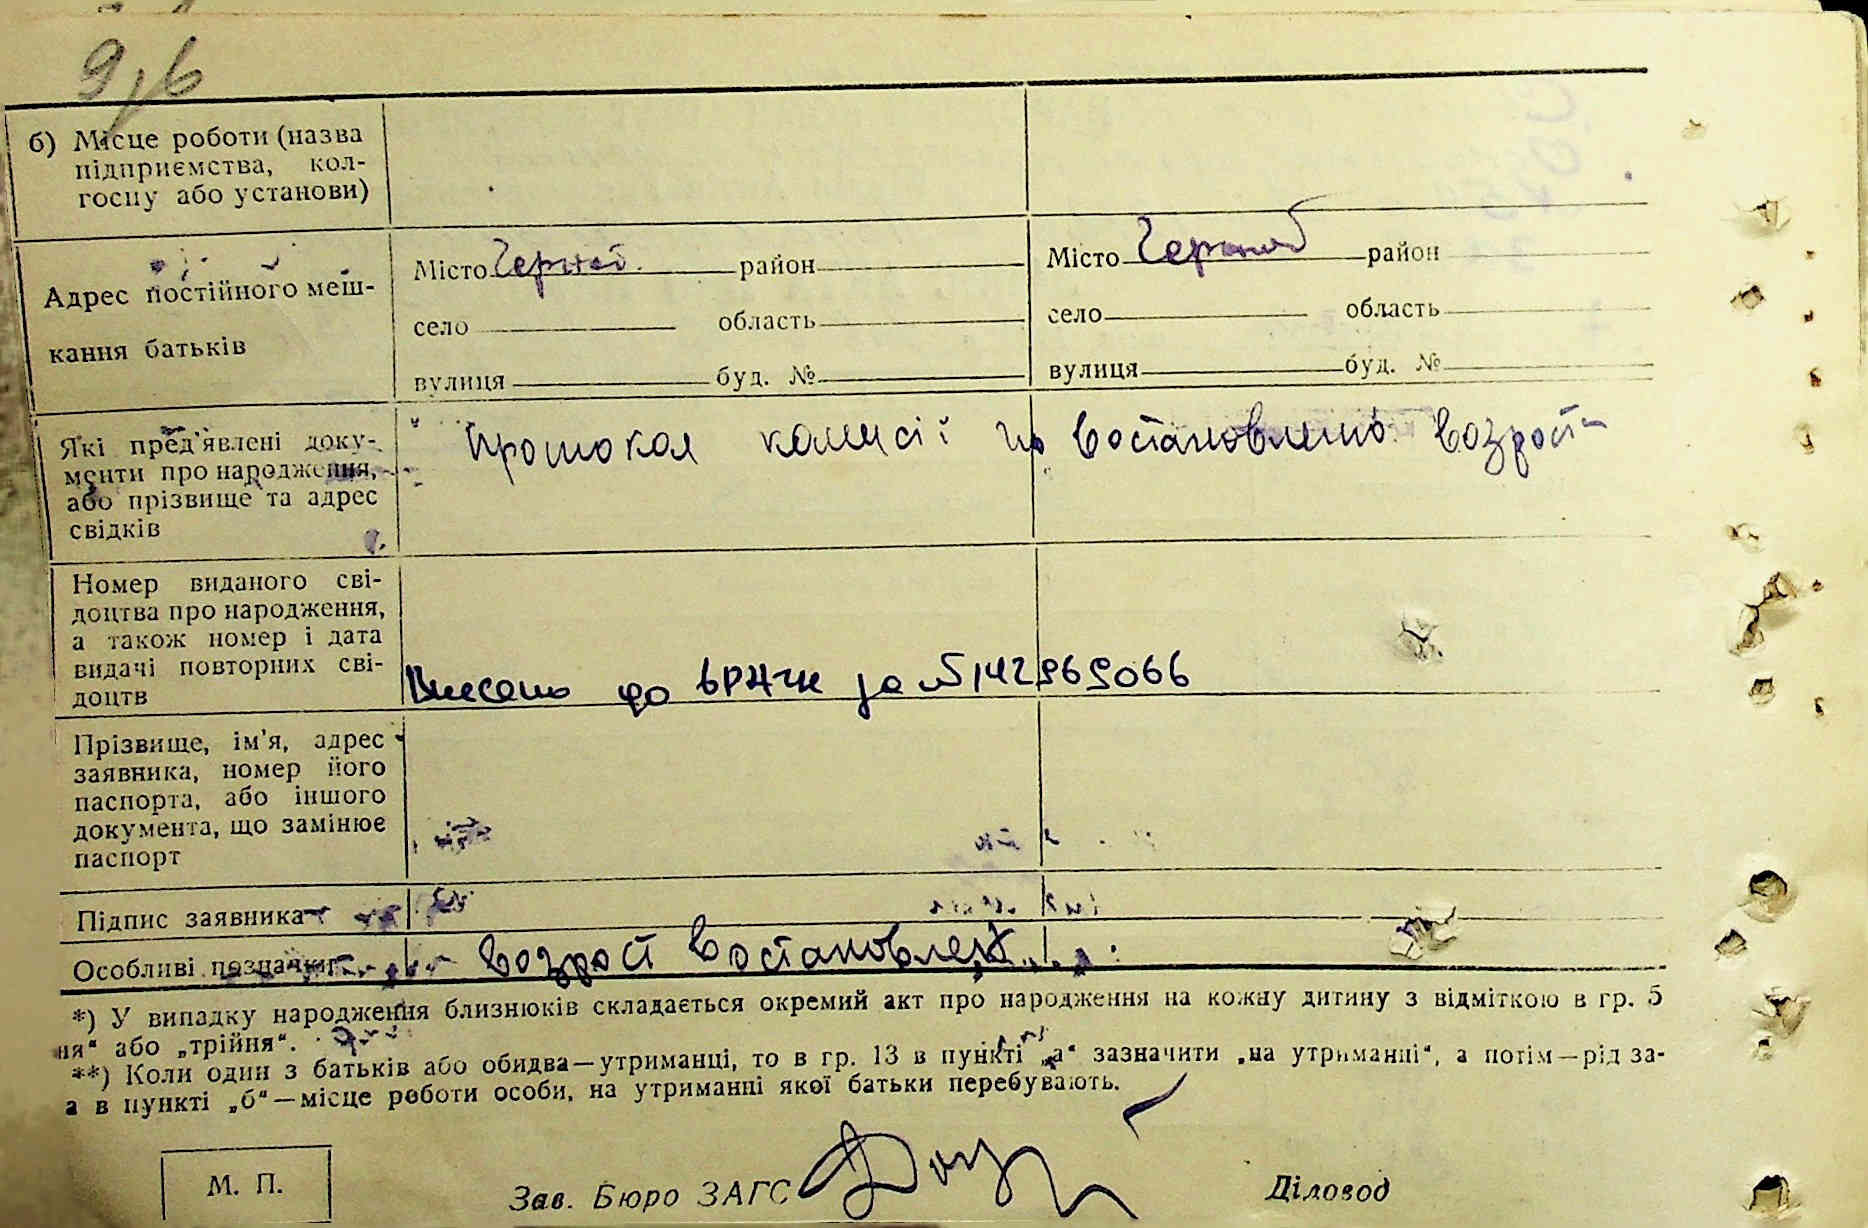 б) Місце роботи (назва
підприємства, кол-
госпу або установи)
Адрес постійного меш-
кання батьків
Місто район
село область
вулиця буд. №
Місто район
село область
вулиця буд. №
Які пред'явлені доку-
менти про народження,
або прізвище та адрес
свідків
Протокол комисії по востановлению возраст
Номер виданого сві-
доцтва про народження,
а також номер і дата
видачі повторних сві-
доцтв
Внесено до за № 142969066
Прізвище, ім'я, адрес
заявника, номер його
паспорта, або іншого
документа, що замінює
паспорт
Підпис заявника
Особливі позначки
возраст востановлен
*) У випадку народження близнюків складається окремий акт про народження на кожну дитину з відміткою в гр. 5
ня" або „трійня".
**) Коли один з батьків або обидва—утриманці, то в гр. 13 в пункті „а" зазначити „на утриманні", а потім—рід за-
а в пункті „б"—місце роботи особи, на утриманні якої батьки перебувають.
М. П.
Зав. Бюро ЗАГС
Діловод